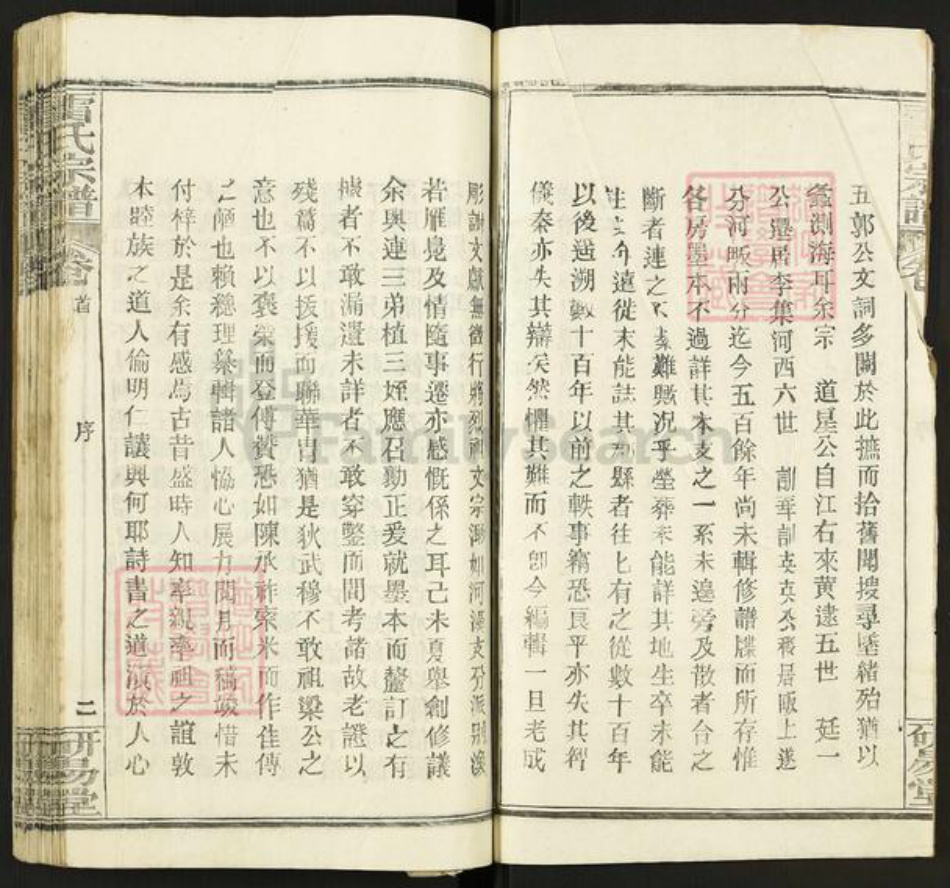 五郭公文詞多闕於此摭而拾舊聞搜尋墜緒殆猶以
蠡測海耳余宗 道星公自江右來黄逮五世 廷一
公還居李集河西六世 訓華訓英英公移居畈上遂
分河畈兩分迄今五百餘年尚未輯修譜牒而所存惟
各房墨本不過詳其本支之一系未遑旁及散者合之
斷者連之不綦難歟况乎塋葬未能詳其地生卒未能
遠從未能誌其縣者往匕有之從數十百年
以後遡溯數十百年以前之軼事竊恐良平亦失其智
儀秦亦失其辯矣然懼其難而不卽今編輯一旦老成
彫謝文獻無徵行將烈祖文宗派別
若雁鳧及情隨事遷亦感慨係之耳己未夏舉創修議
余與連三弟植三姪應召勷正爰就墨本而釐訂之有
據者不敢漏遺未詳者不敢穿鑿而間考諸故老證以
殘篇不以援援而聯華冑猶是狄武穆不敢祖梁公之
意也不以褒榮而登傳贊恐如陳承祚索米而作佳傳
之陋也賴總理纂輯諸人協心展力閱月而稿竣惜未
付梓於是余有感焉古昔盛時人知率親率祖之誼敦
本睦族之道人倫明仁讓興何耶詩書之道漬於人心
雷氏宗譜
卷首
序
二
研易堂